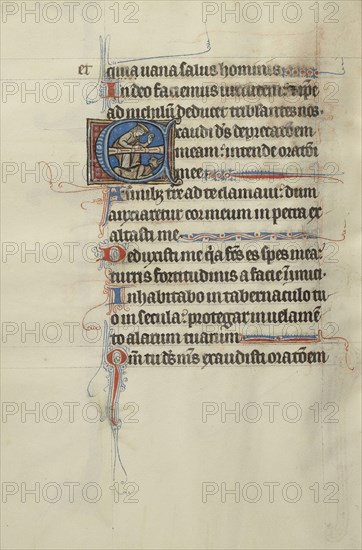 et quia vana salus hominis
In deo faciemus virtutem: et ipe
ad nichilum deducet tribulantes nos.
Exaudi ds deprecatoem
meam: intende oratoni
mee
A finib; tre ad te clamavi: dum
anxiaretur cor meum in petra ex
altasti me
Deduxisti me qa fcs es spes mea:
turris fortitudinis a facie inimici.
Inhabitabo in tabernaculo tu
o in secula: protegar in velamen
to alarum tuarum
Qm tu ds ms exaudisti oratoem
PHOTO 12